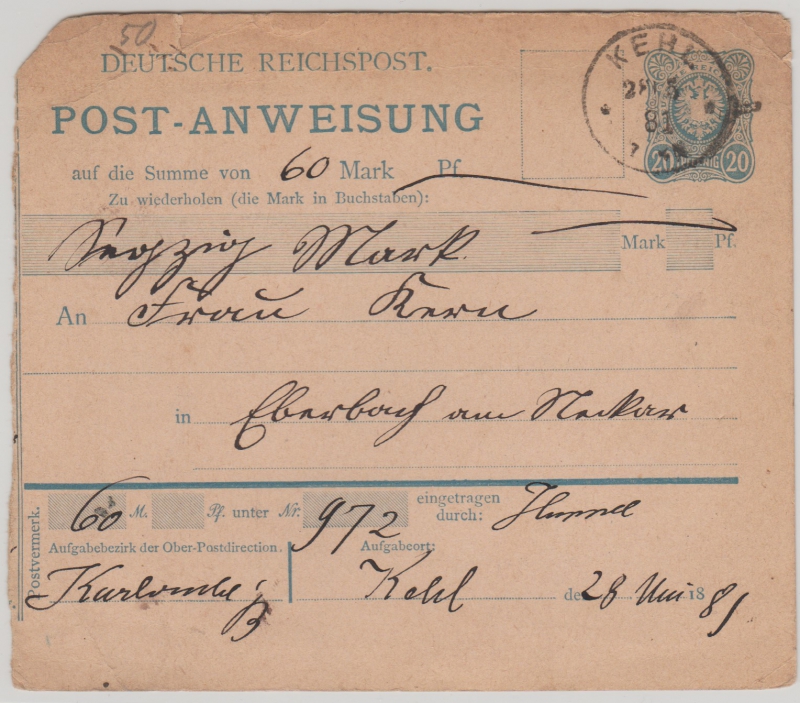 50.
DEUTSCHE REICHSPOST.
KEHL
28 5
81
20 PFENNIG 20
POST-ANWEISUNG
auf die Summe von 60 Mark Pf.
Zu wiederholen (die Mark in Buchstaben):
Sechzig Mark. Mark Pf.
An Frau Kern
in Eberbach am Neckar
Postvermerk.
60 M. Pf. unter Nr. 972 eingetragen durch:
Aufgabebezirk der Ober-Postdirection. Aufgabeort:
Kehl den 28 Mai 1881